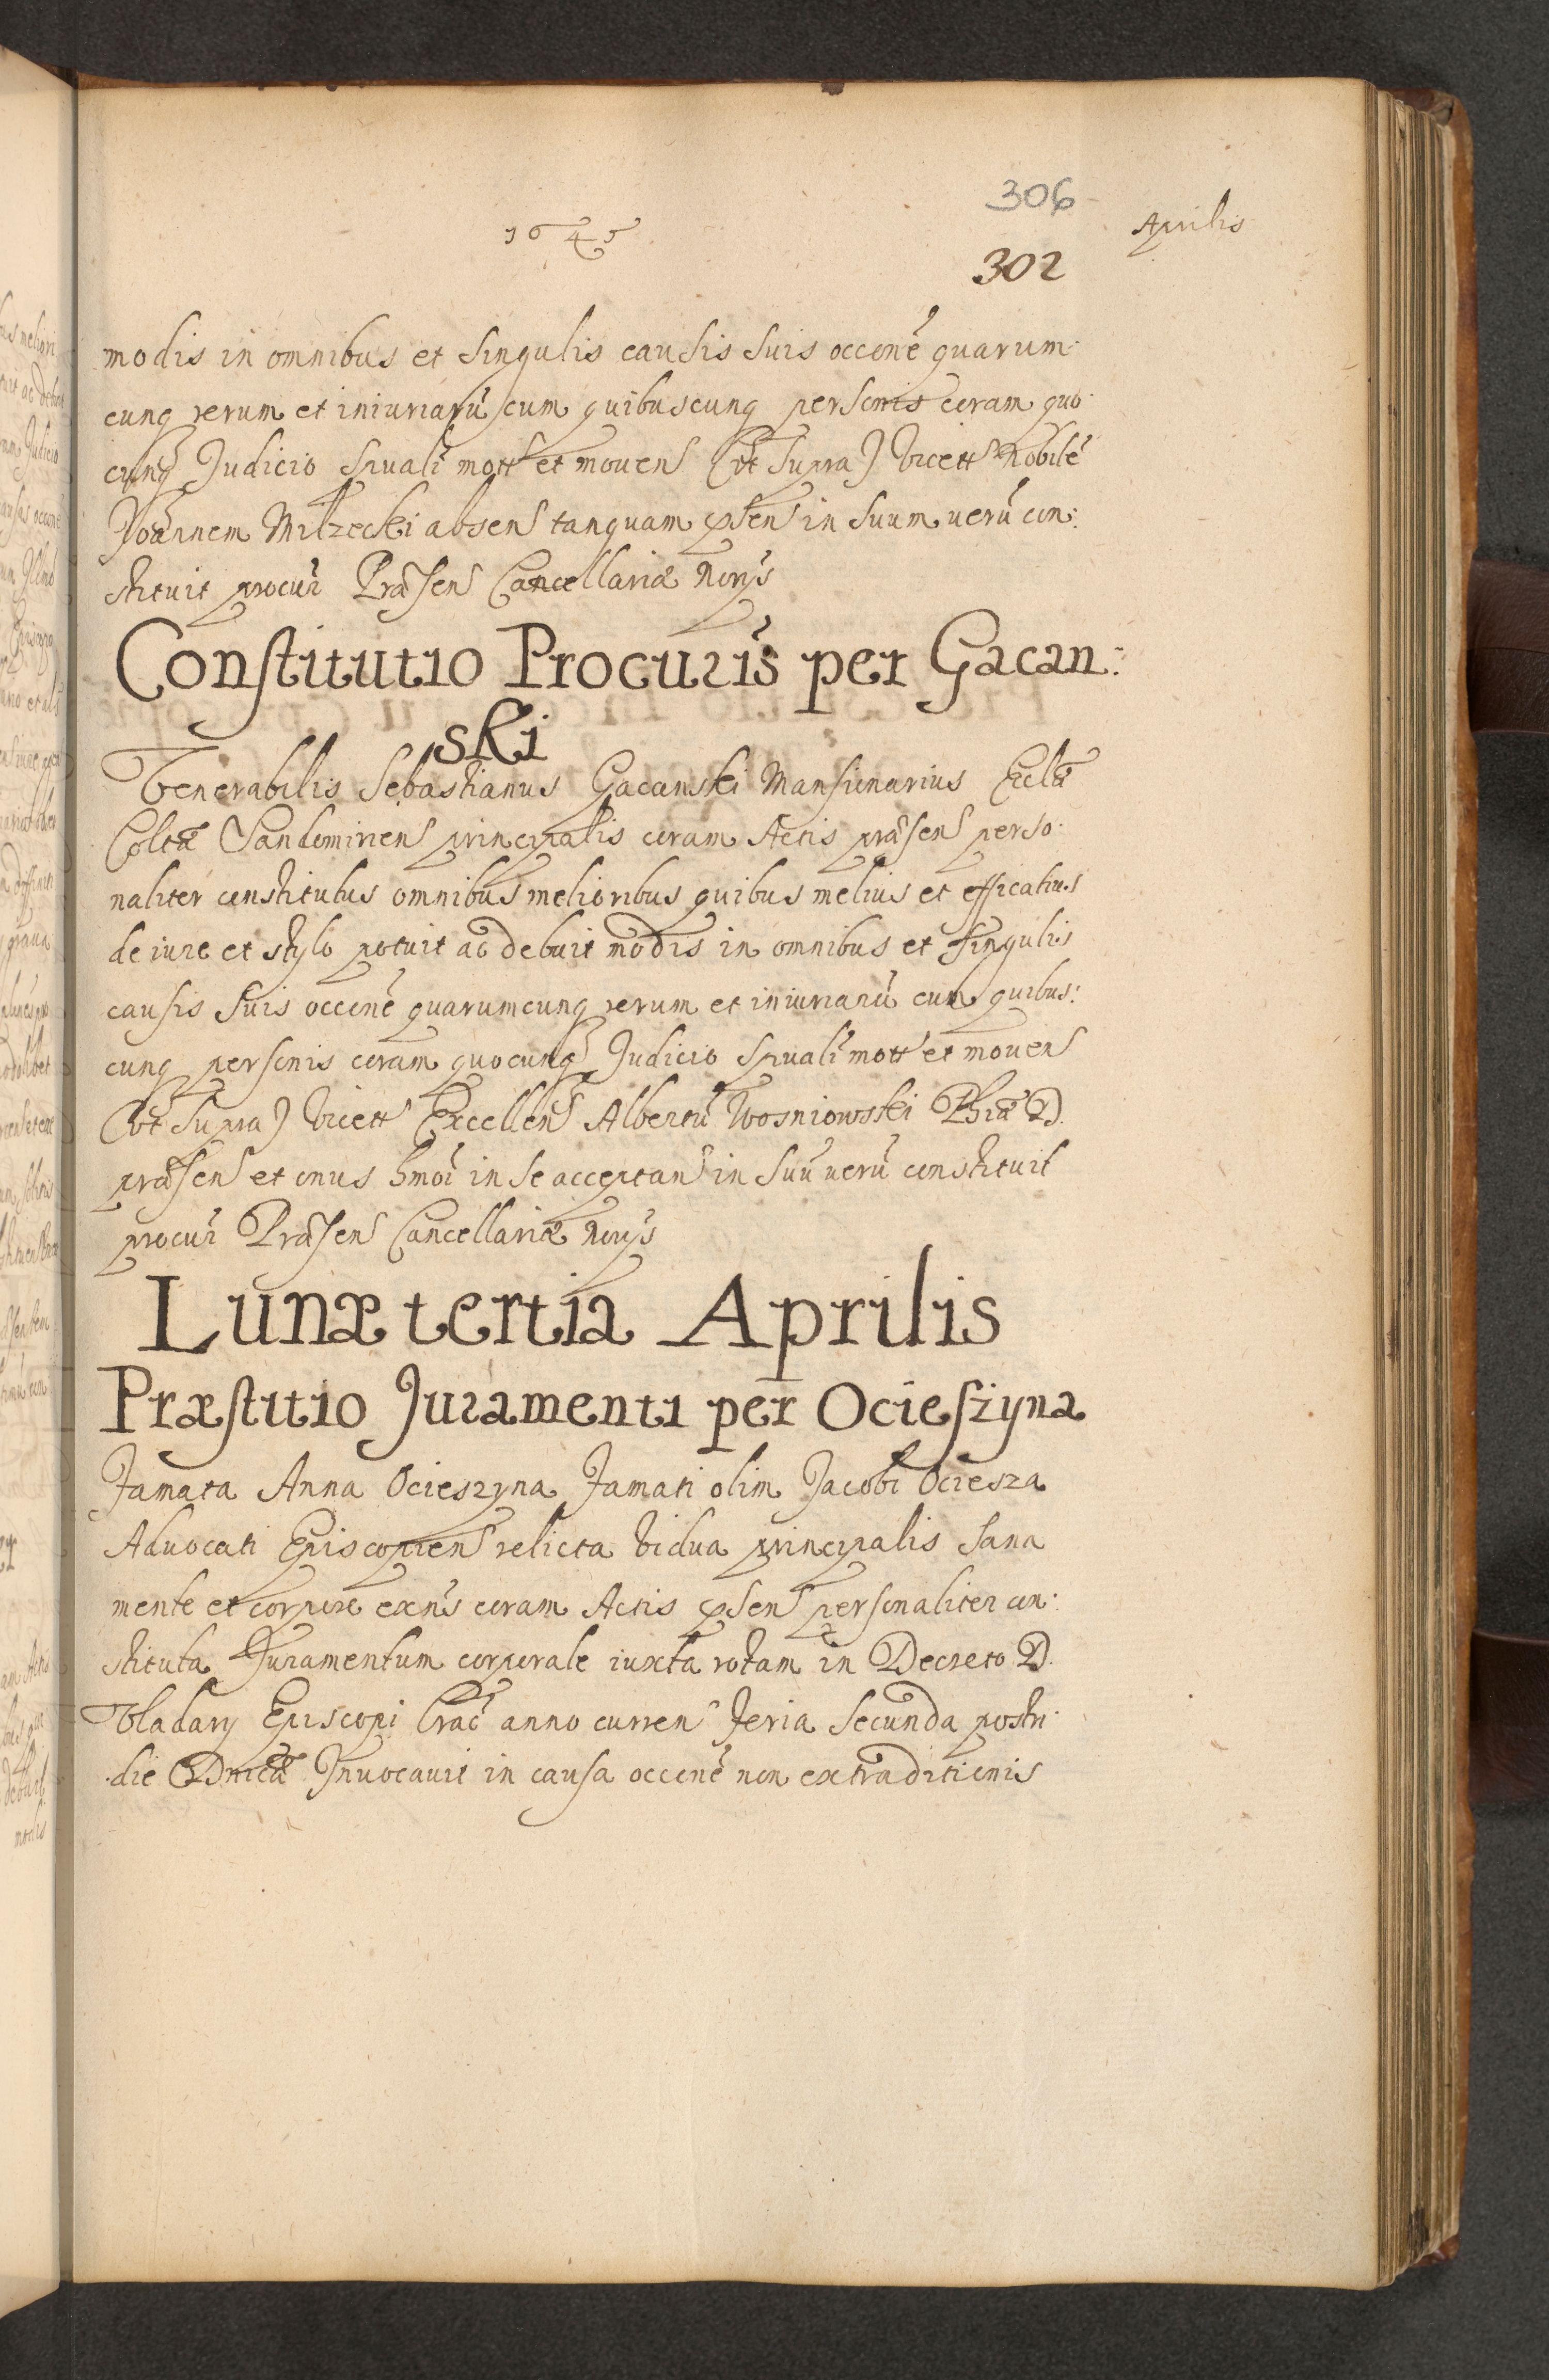 306
1645
Aprilis
302
modis in omnibus et singulis causis suis occõne quarum:
cunq rerum et iniuriarũ cum quibuscunq personis coram quo:
cunq Judicio spuali mott et mouen (vt supra) vicett Nobilẽ
Joannem Milzecki absen tanquam psen in suum uerũ con:
stituit procur Præsen Cancellariæ Norijs
Constitutio Procuris per Gacan:
ski
Venerabilis Sebastianus Gacanski Mansionarius Eccliæ
Coltæ Sandomirien principalis coram Actis præsen perso:
naliter constitutus omnibus melioribus quibus melius et efficatius
de iure et stylo potuit ac debuit modis in omnibus et singulis
causis suis occõne quarumcunq rerum et iniuriarũ cum quibus:
cunq personis coram quocunq Judicio spuali mott et mouen
(vt supra) vicett Excellen Albertũ Wosniowski Phiæ D.
præsen et onus hmoi in se acceptan in suũ uerũ constituit
procur Præsen Cancellariæ Norijs
Lunæ tertia Aprilis
Præstitio Juramenti per Ociesżyna
Famata Anna Ocieszyna Famati olim Jacobi Ociesza
Aduocati Episcopien relicta vidua principalis sana
mente et corpore exns coram Actis psen personaliter con:
stituta Juramentum corporale iuxta rotam in Decreto D.
Vladarij Episcopi Crac anno curren feria secunda postri:
die Dnicæ Inuocauit in causa occõne non extraditionis